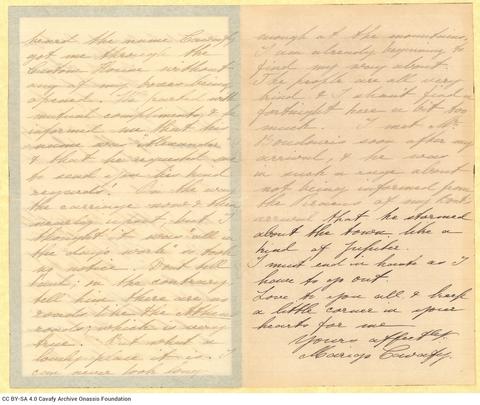 heard the name Cavafy
got me through the
Custom House without
any of my boxes being
opened. We parted with
mutual compliments & he
informed me that his
name was "Alexander"
& that he requested me
to send you his kind
regards. On the way
the carriage now & then
nearly upset, but I
thought it was "all in
the day's work" & took
no notice. Don't tell
; on the contrary
tell him there are no
roads like the Athens
roads; which is very
true. But what a
lovely place it is. I
can never look long
enough at the mountains,
I am already beginning to
find my way about.
The people are all very
kind & I shan't find a
fortnight here a bit too
much. I met Mr.
soon after my
arrival, & he was
in such a rage about
not being informed from
the Piraeus of my boat's
arrival that he stormed
about the town like a
kind of Jupiter.
I must end in haste as I
have to go out.
Love to you all & keep
a little corner in your
hearts for me
Yours affectly.
Marigo Cavafy.
CC BY-SA 4.0 Cavafy Archive Onassis Foundation